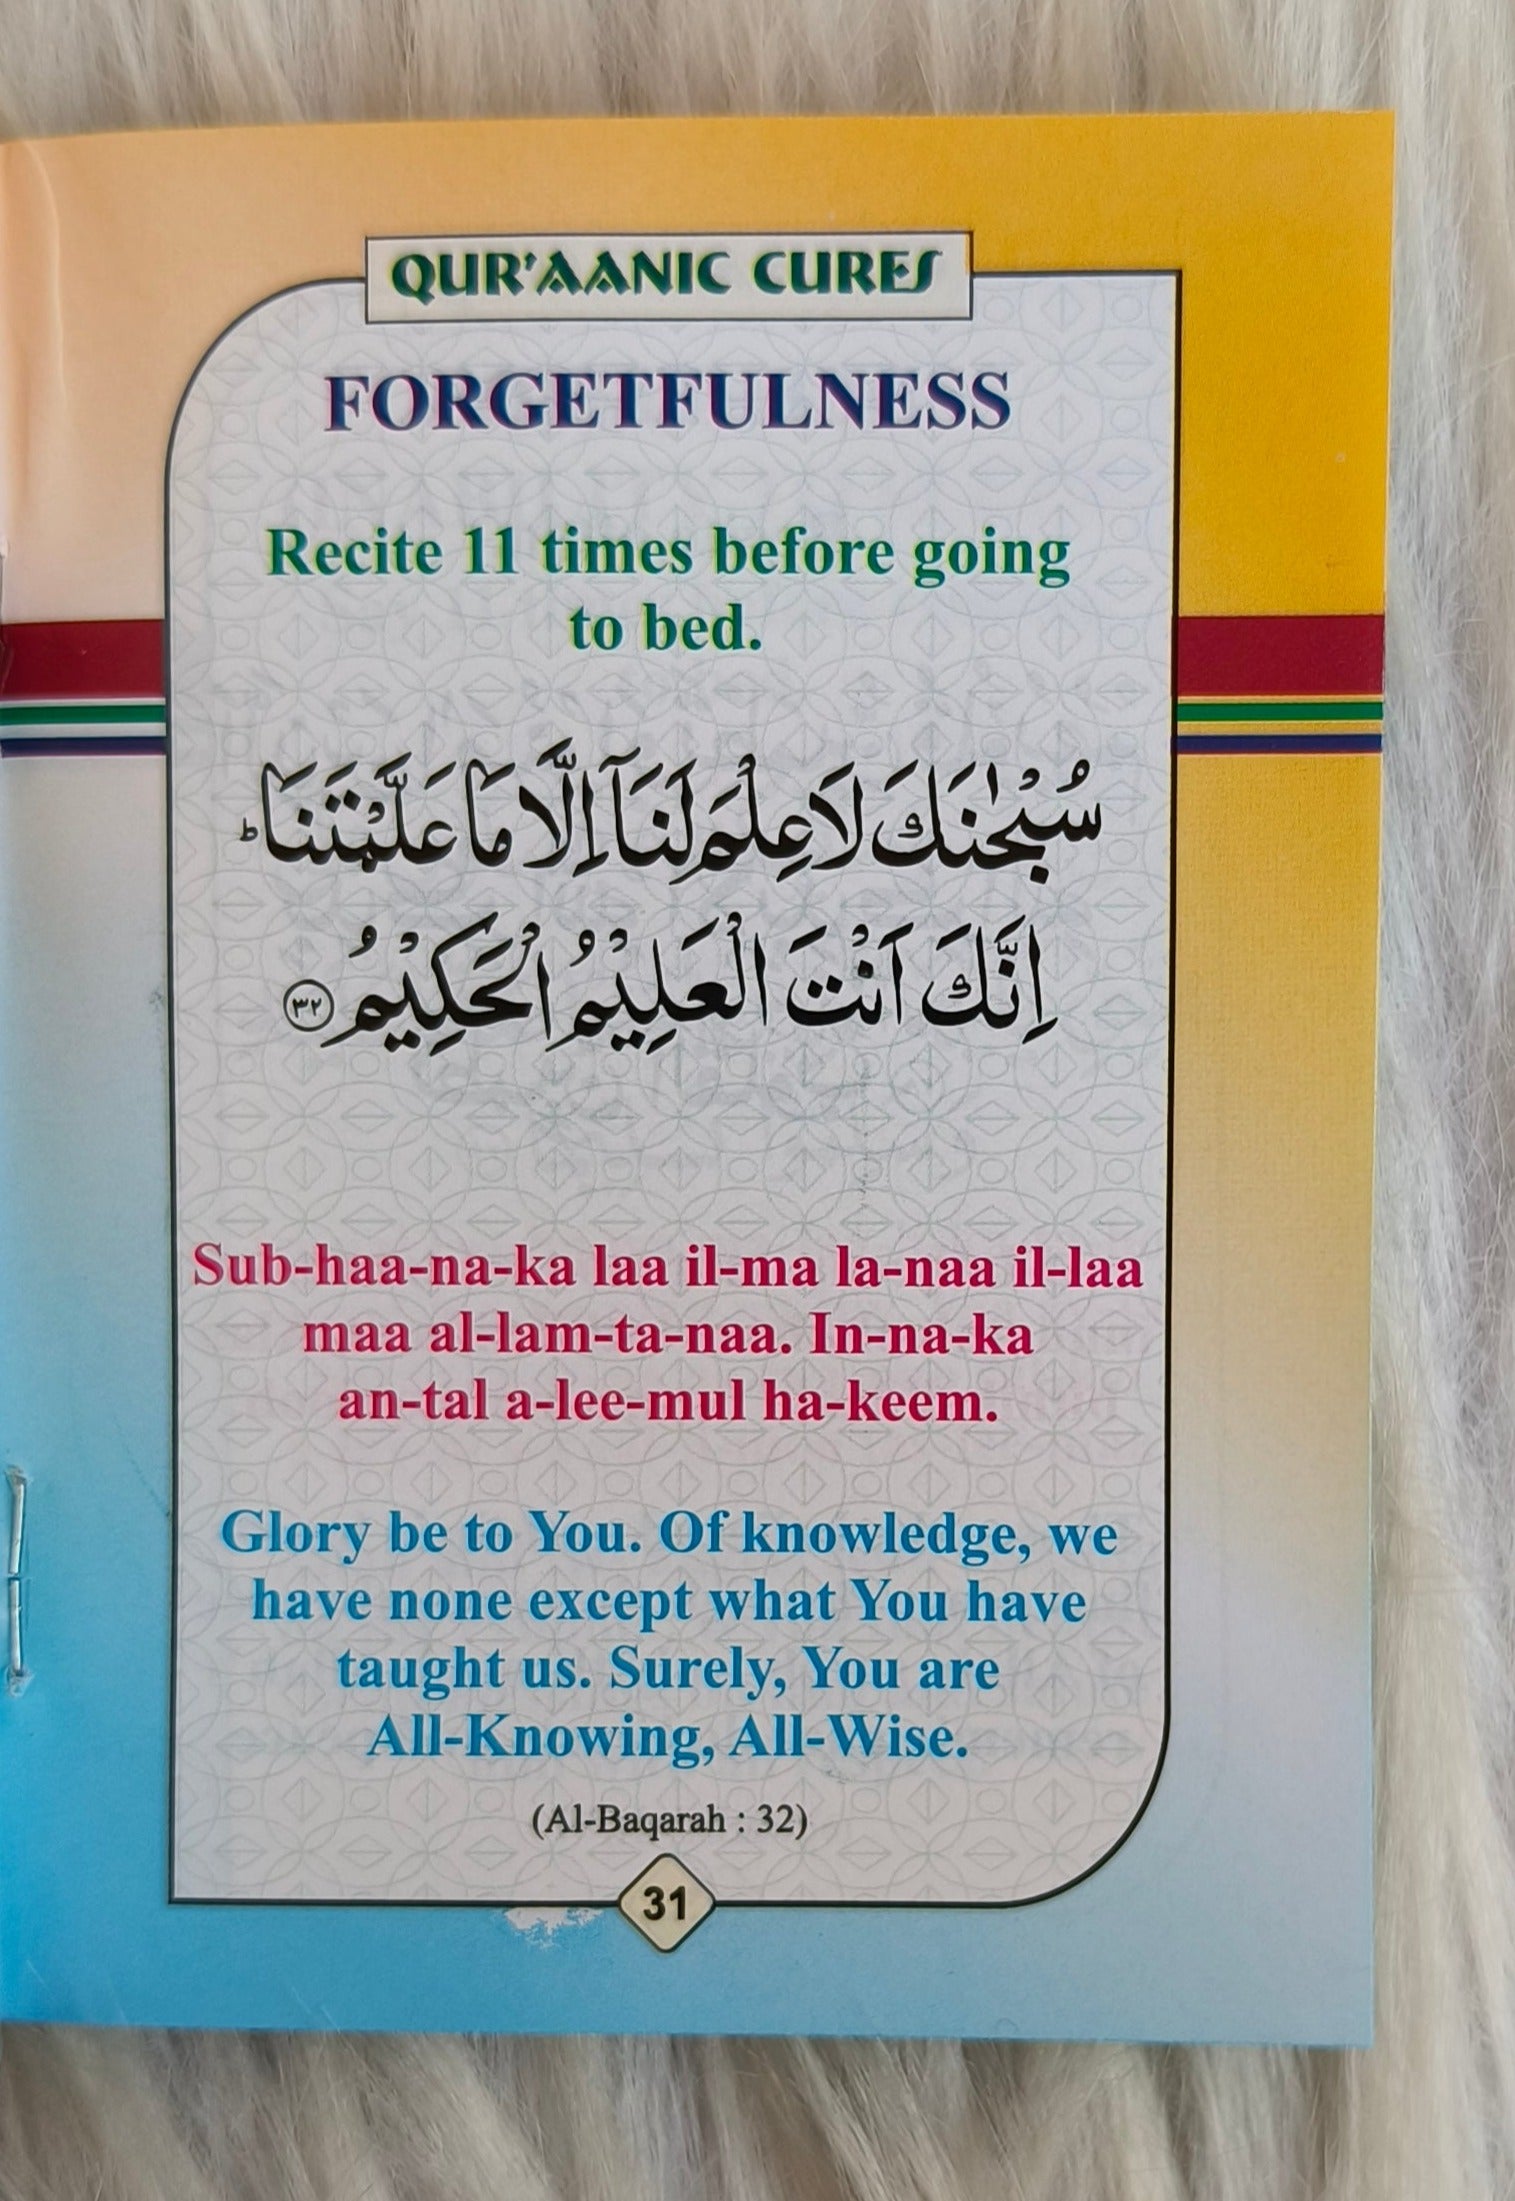 QUR'AANIC CURES
FORGETFULNESS
Recite 11 times before going
to bed.
سُبْحٰنَكَ لَا عِلْمَ لَنَآ اِلَّا مَا عَلَّمْتَنَا ؕ
اِنَّكَ اَنْتَ الْعَلِيْمُ الْحَكِيْمُ ﴿٣٢﴾
Sub-haa-na-ka laa il-ma la-naa il-laa
maa al-lam-ta-naa. In-na-ka
an-tal a-lee-mul ha-keem.
Glory be to You. Of knowledge, we
have none except what You have
taught us. Surely, You are
All-Knowing, All-Wise.
(Al-Baqarah : 32)
31